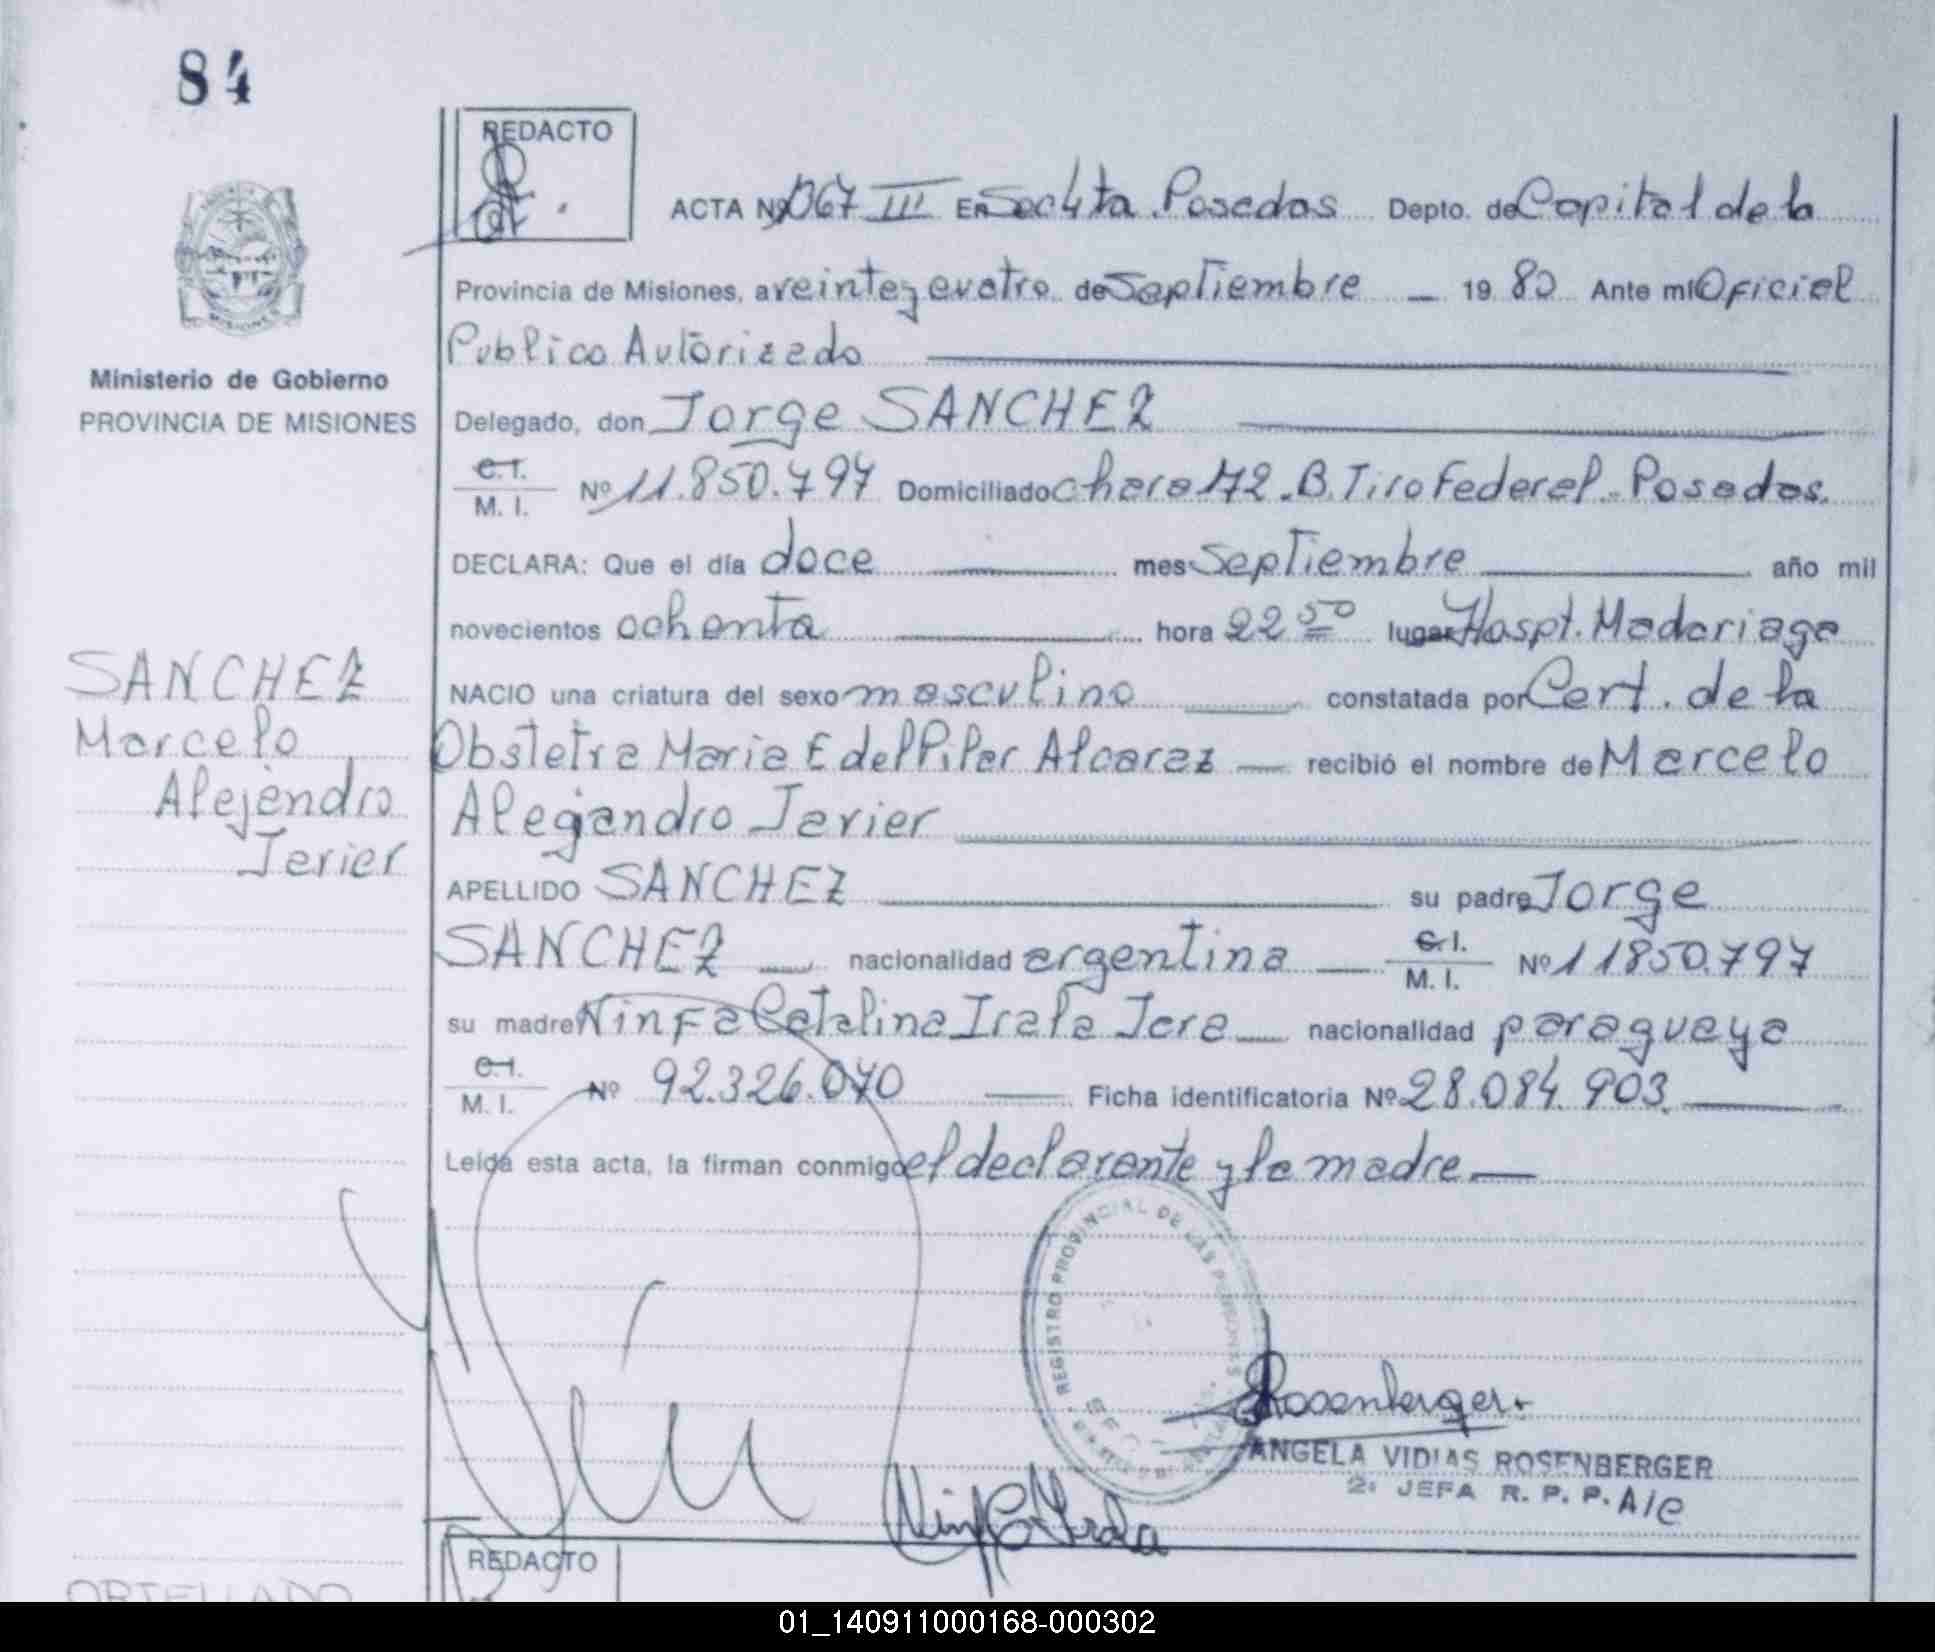 84
REDACTO
ACTA Nº 067 III EN Secc 4ta Posadas Depto. de Capital de la
Provincia de Misiones, a veinte y cuatro de Septiembre — 19 80 Ante mi Oficial
Publico Autorizado
Ministerio de Gobierno
PROVINCIA DE MISIONES
Delegado, don Jorge SANCHEZ
C.I.
M. I. Nº 11.850.797 Domiciliado chara 172 . B. Tiro Federal - Posadas.
DECLARA: Que el día doce mes Septiembre año mil
novecientos ochenta hora 22 50 lugar Hospt. Madariaga
SANCHEZ
Marcelo
Alejandro
Javier
NACIO una criatura del sexo masculino constatada por Cert. de la
Obstetra Maria E del Pilar Alcaraz — recibió el nombre de Marcelo
Alejandro Javier
APELLIDO SANCHEZ su padre Jorge
SANCHEZ nacionalidad argentina C.I.
M. I. Nº 11850.797
su madre Ninfa Catalina Irala Jara nacionalidad paraguaya
C.I.
M. I. Nº 92.326.070 Ficha identificatoria Nº 28.084.903
Leída esta acta, la firman conmigo el declarante y la madre —
REGISTRO PROVINCIAL DE LAS PERSONAS
Rosenberger
ANGELA VIDIAS ROSENBERGER
2º JEFA R. P. P. A/C
Ninfa C. Irala
REDACTO
ORTELLADO
01_140911000168-000302